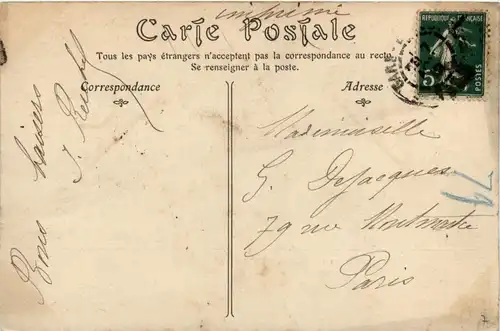 imprimé
Carte Postale
Tous les pays étrangers n'acceptent pas la correspondance au recto.
Se renseigner à la poste.
Correspondance
Adresse
REPUBLIQUE FRANÇAISE
5
POSTES
Bons baisers
Mademoiselle
G. Dejacques
79 rue Montmartre
Paris